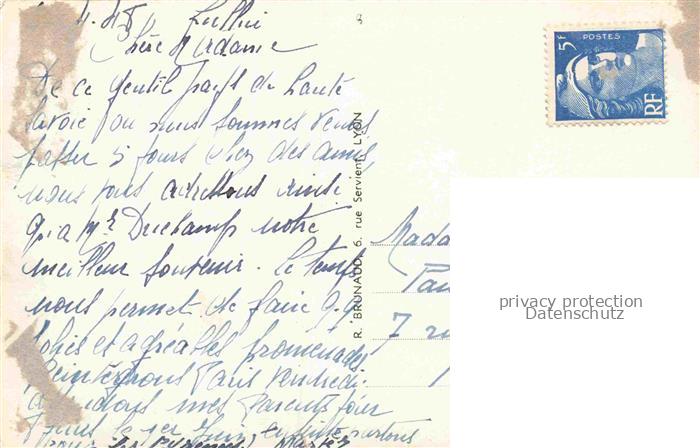 Lullin
Chère Madame
De ce gentil pays de Haute
Savoie où nous sommes venus
passer 5 jours chez des amis,
nous vous adressons ainsi
qu'à Mr Duchamp notre
meilleur souvenir. Le temps
nous permet de faire qq
jolies et agréables promenades
Réintégrons Paris Vendredi.
mes Parents pour
le 1er Juin
R. BRUNAUD, 6, rue Servient, LYON
5F
POSTES
RF
Mada
7 ru
privacy protection
Datenschutz